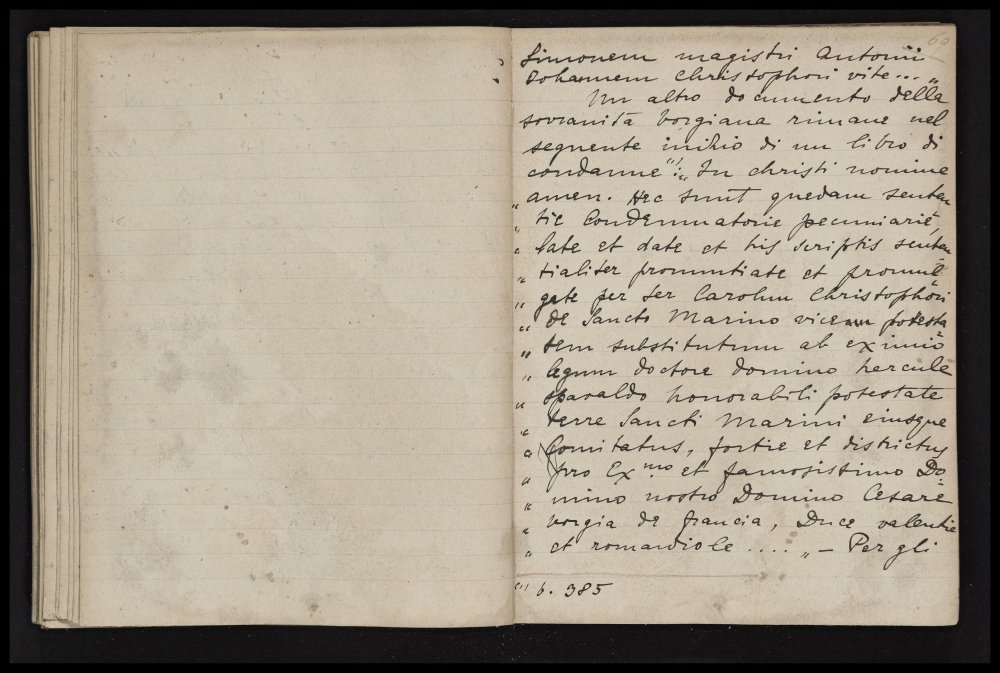 60
Simonem magistri Antonii
Johannem Christophori vite... „
Un altro documento della
sovranità borgiana rimane nel
seguente inizio di un libro di
condanne (1): „ In christi nomine
„ amen. Hec sunt quedam senten
„ tie Condemnatorie pecuniarie,
„ late et date et his scriptis senten
„ tialiter pronuntiate et promul
„ gate per ser Carolum Christophori
„ de Sancto Marino vicem potesta
„ tem substitutum ab eximio
„ legum doctore domino hercule
„ sparaldo honorabili potestate
„ terre Sancti Marini eiusque
„ Comitatus, fortie et districtus
„ pro Ex.mo et famosissimo Do
„ mino nostro Domino Cesare
„ borgia de francia, Duce valentie
„ et romandiole .... „ — Per gli
(1) b. 385